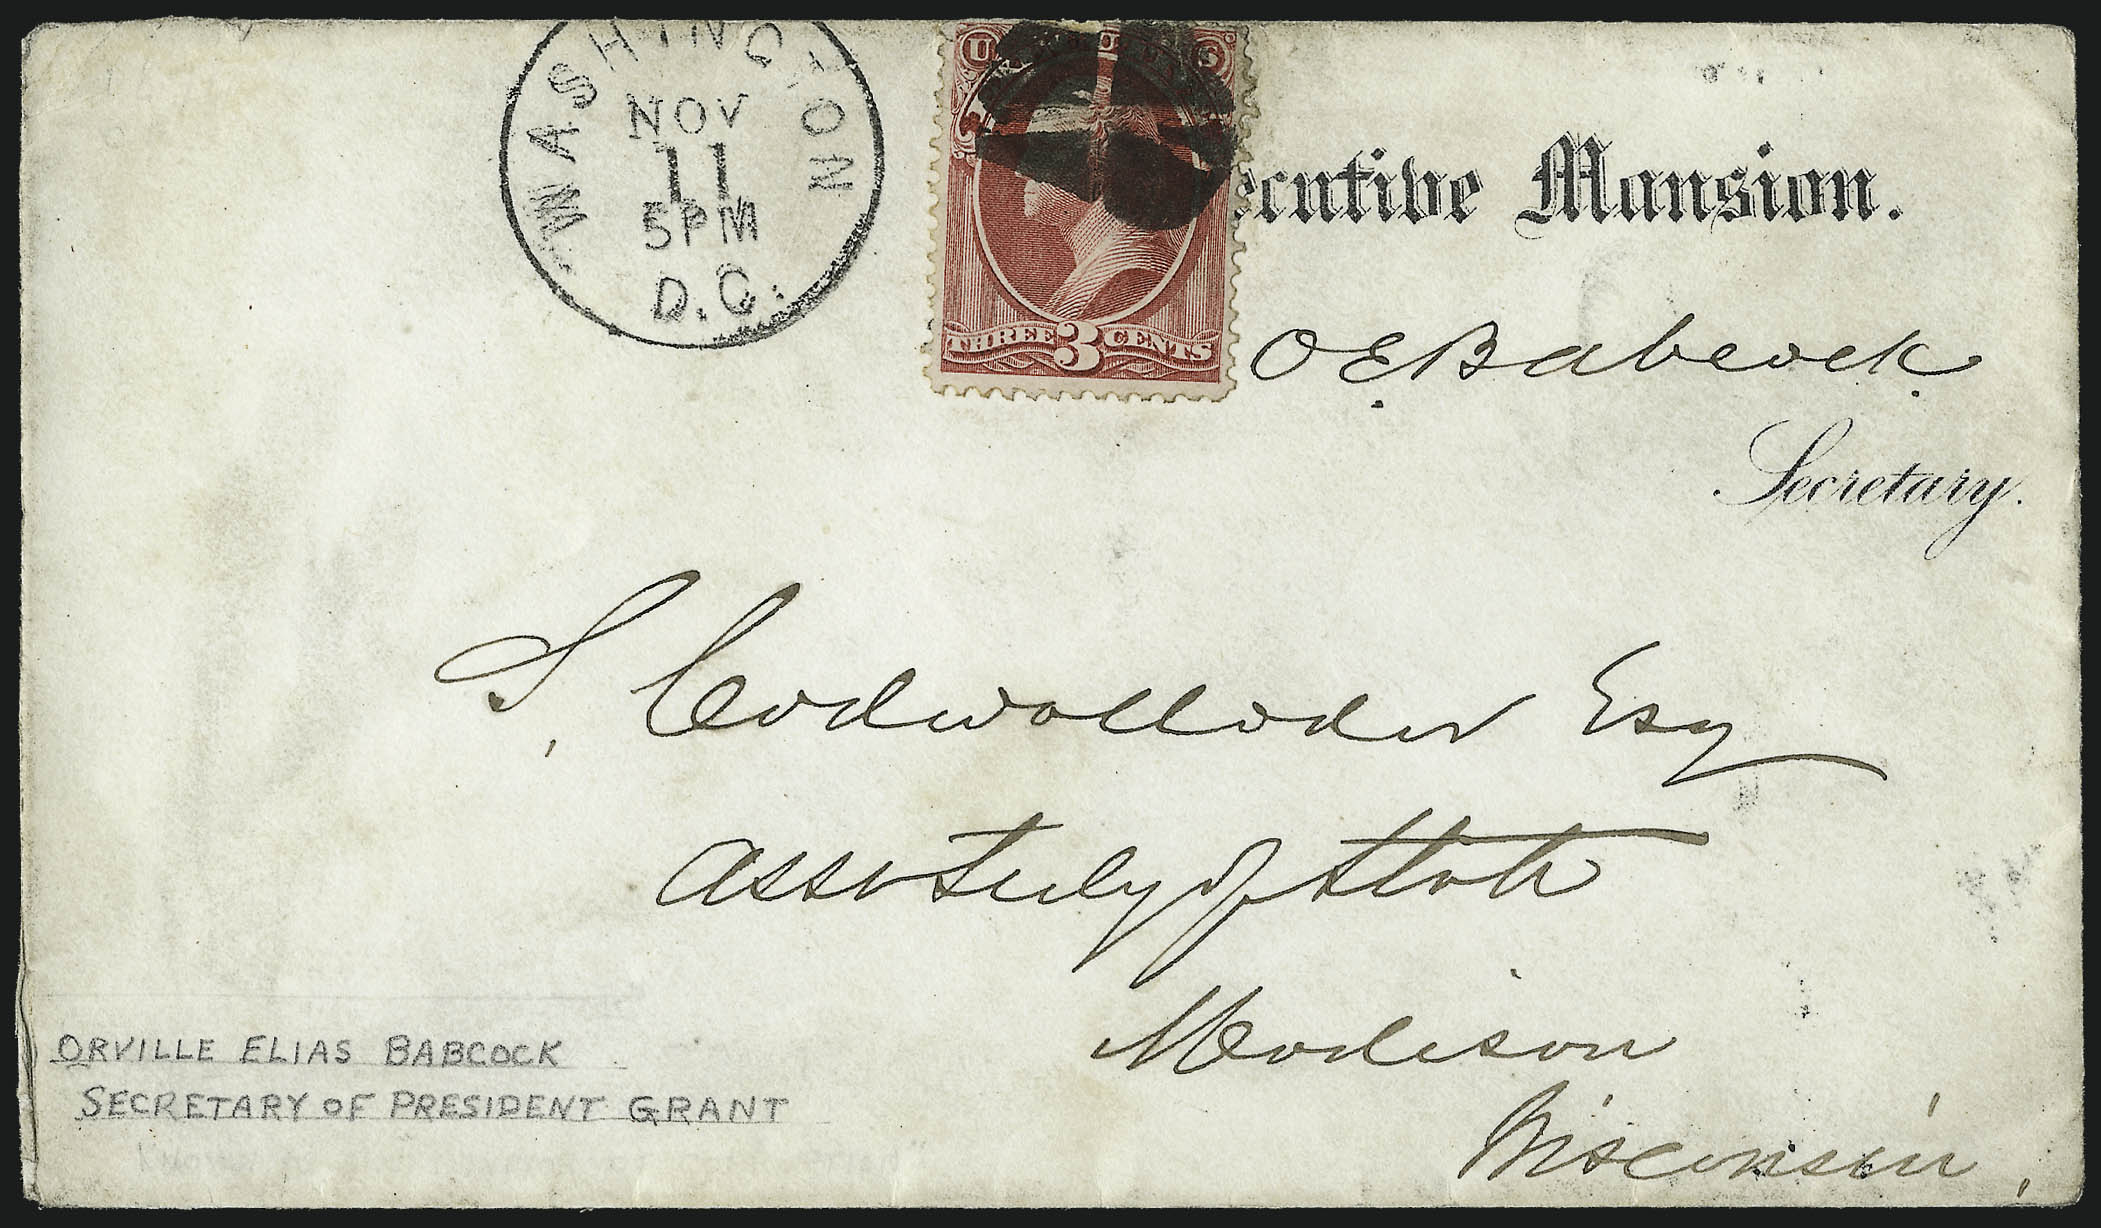 WASHINGTON
NOV
11
5PM
D.C.
U S
THREE 3 CENTS
ecutive Mansion.
O E Babcock
Secretary.
S. Cadwallader Esq
Asst Secty of State
Madison
Wisconsin,
ORVILLE ELIAS BABCOCK
SECRETARY OF PRESIDENT GRANT